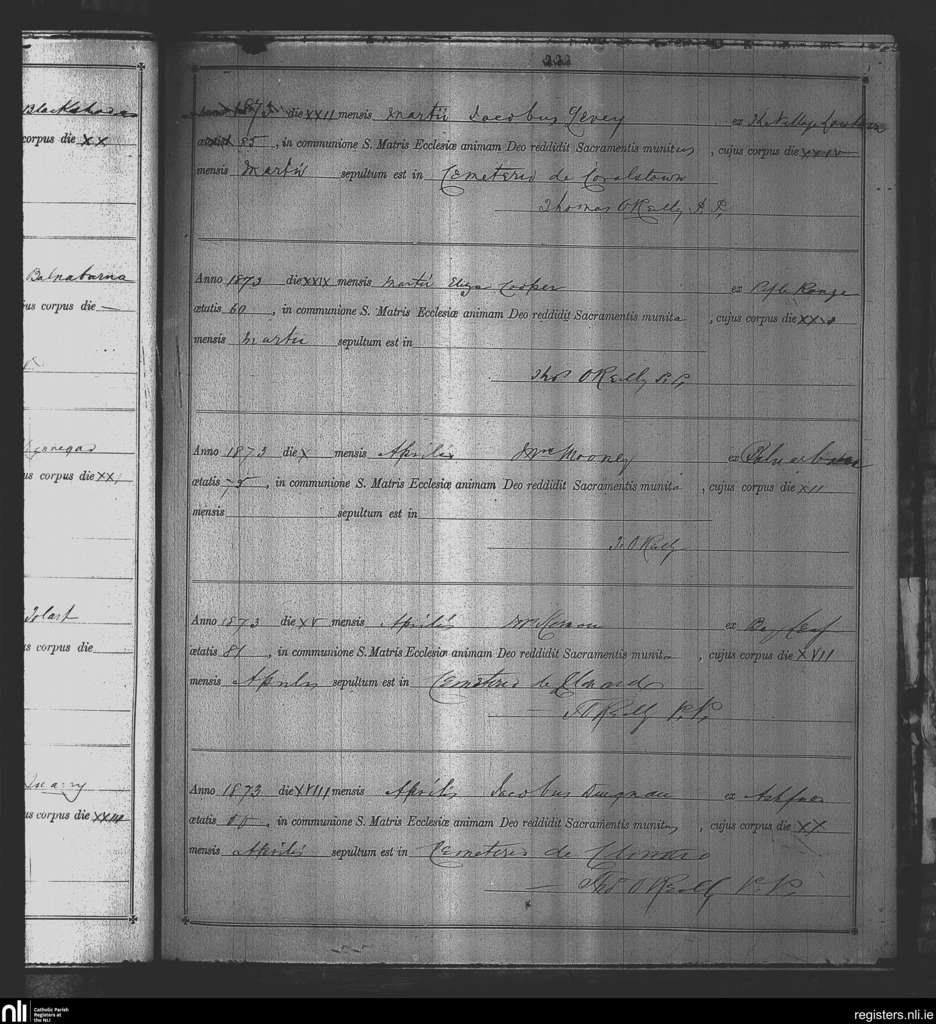 Blackshade
corpus die XX
Balnabarna
us corpus die —
us corpus die XX
us corpus die
us corpus die XXIII
222
Anno 1873 die XXII mensis Martii Jacobus Levey ex
ætatis 85, in communione S. Matris Ecclesiæ animam Deo reddidit Sacramentis munitus, cujus corpus die XXIV
mensis Martii sepultum est in Cemeterio de Coralstown
Thomas OReilly P.P.
Anno 1873 die XXIX mensis Martii Eliza Cooper ex Rifle Range
ætatis 60, in communione S. Matris Ecclesiæ animam Deo reddidit Sacramentis munita, cujus corpus die
mensis Martii sepultum est in
Thos OReilly P.P.
Anno 1873 die X mensis Aprilis Mrs Mooney ex
ætatis 75, in communione S. Matris Ecclesiæ animam Deo reddidit Sacramentis munita, cujus corpus die XII
mensis sepultum est in
T. OReilly
Anno 1873 die XV mensis Aprilis ex
ætatis 81, in communione S. Matris Ecclesiæ animam Deo reddidit Sacramentis munita, cujus corpus die XVII
mensis Aprilis sepultum est in Cemeterio de Clonard
T OReilly P.P.
Anno 1873 die XVIII mensis Aprilis Jacobus Duignan ex
ætatis, in communione S. Matris Ecclesiæ animam Deo reddidit Sacramentis munitus, cujus corpus die XX
mensis Aprilis sepultum est in Cemeterio de
Thos OReilly P.P.
nli Catholic Parish
Registers at
the NLI
registers.nli.ie